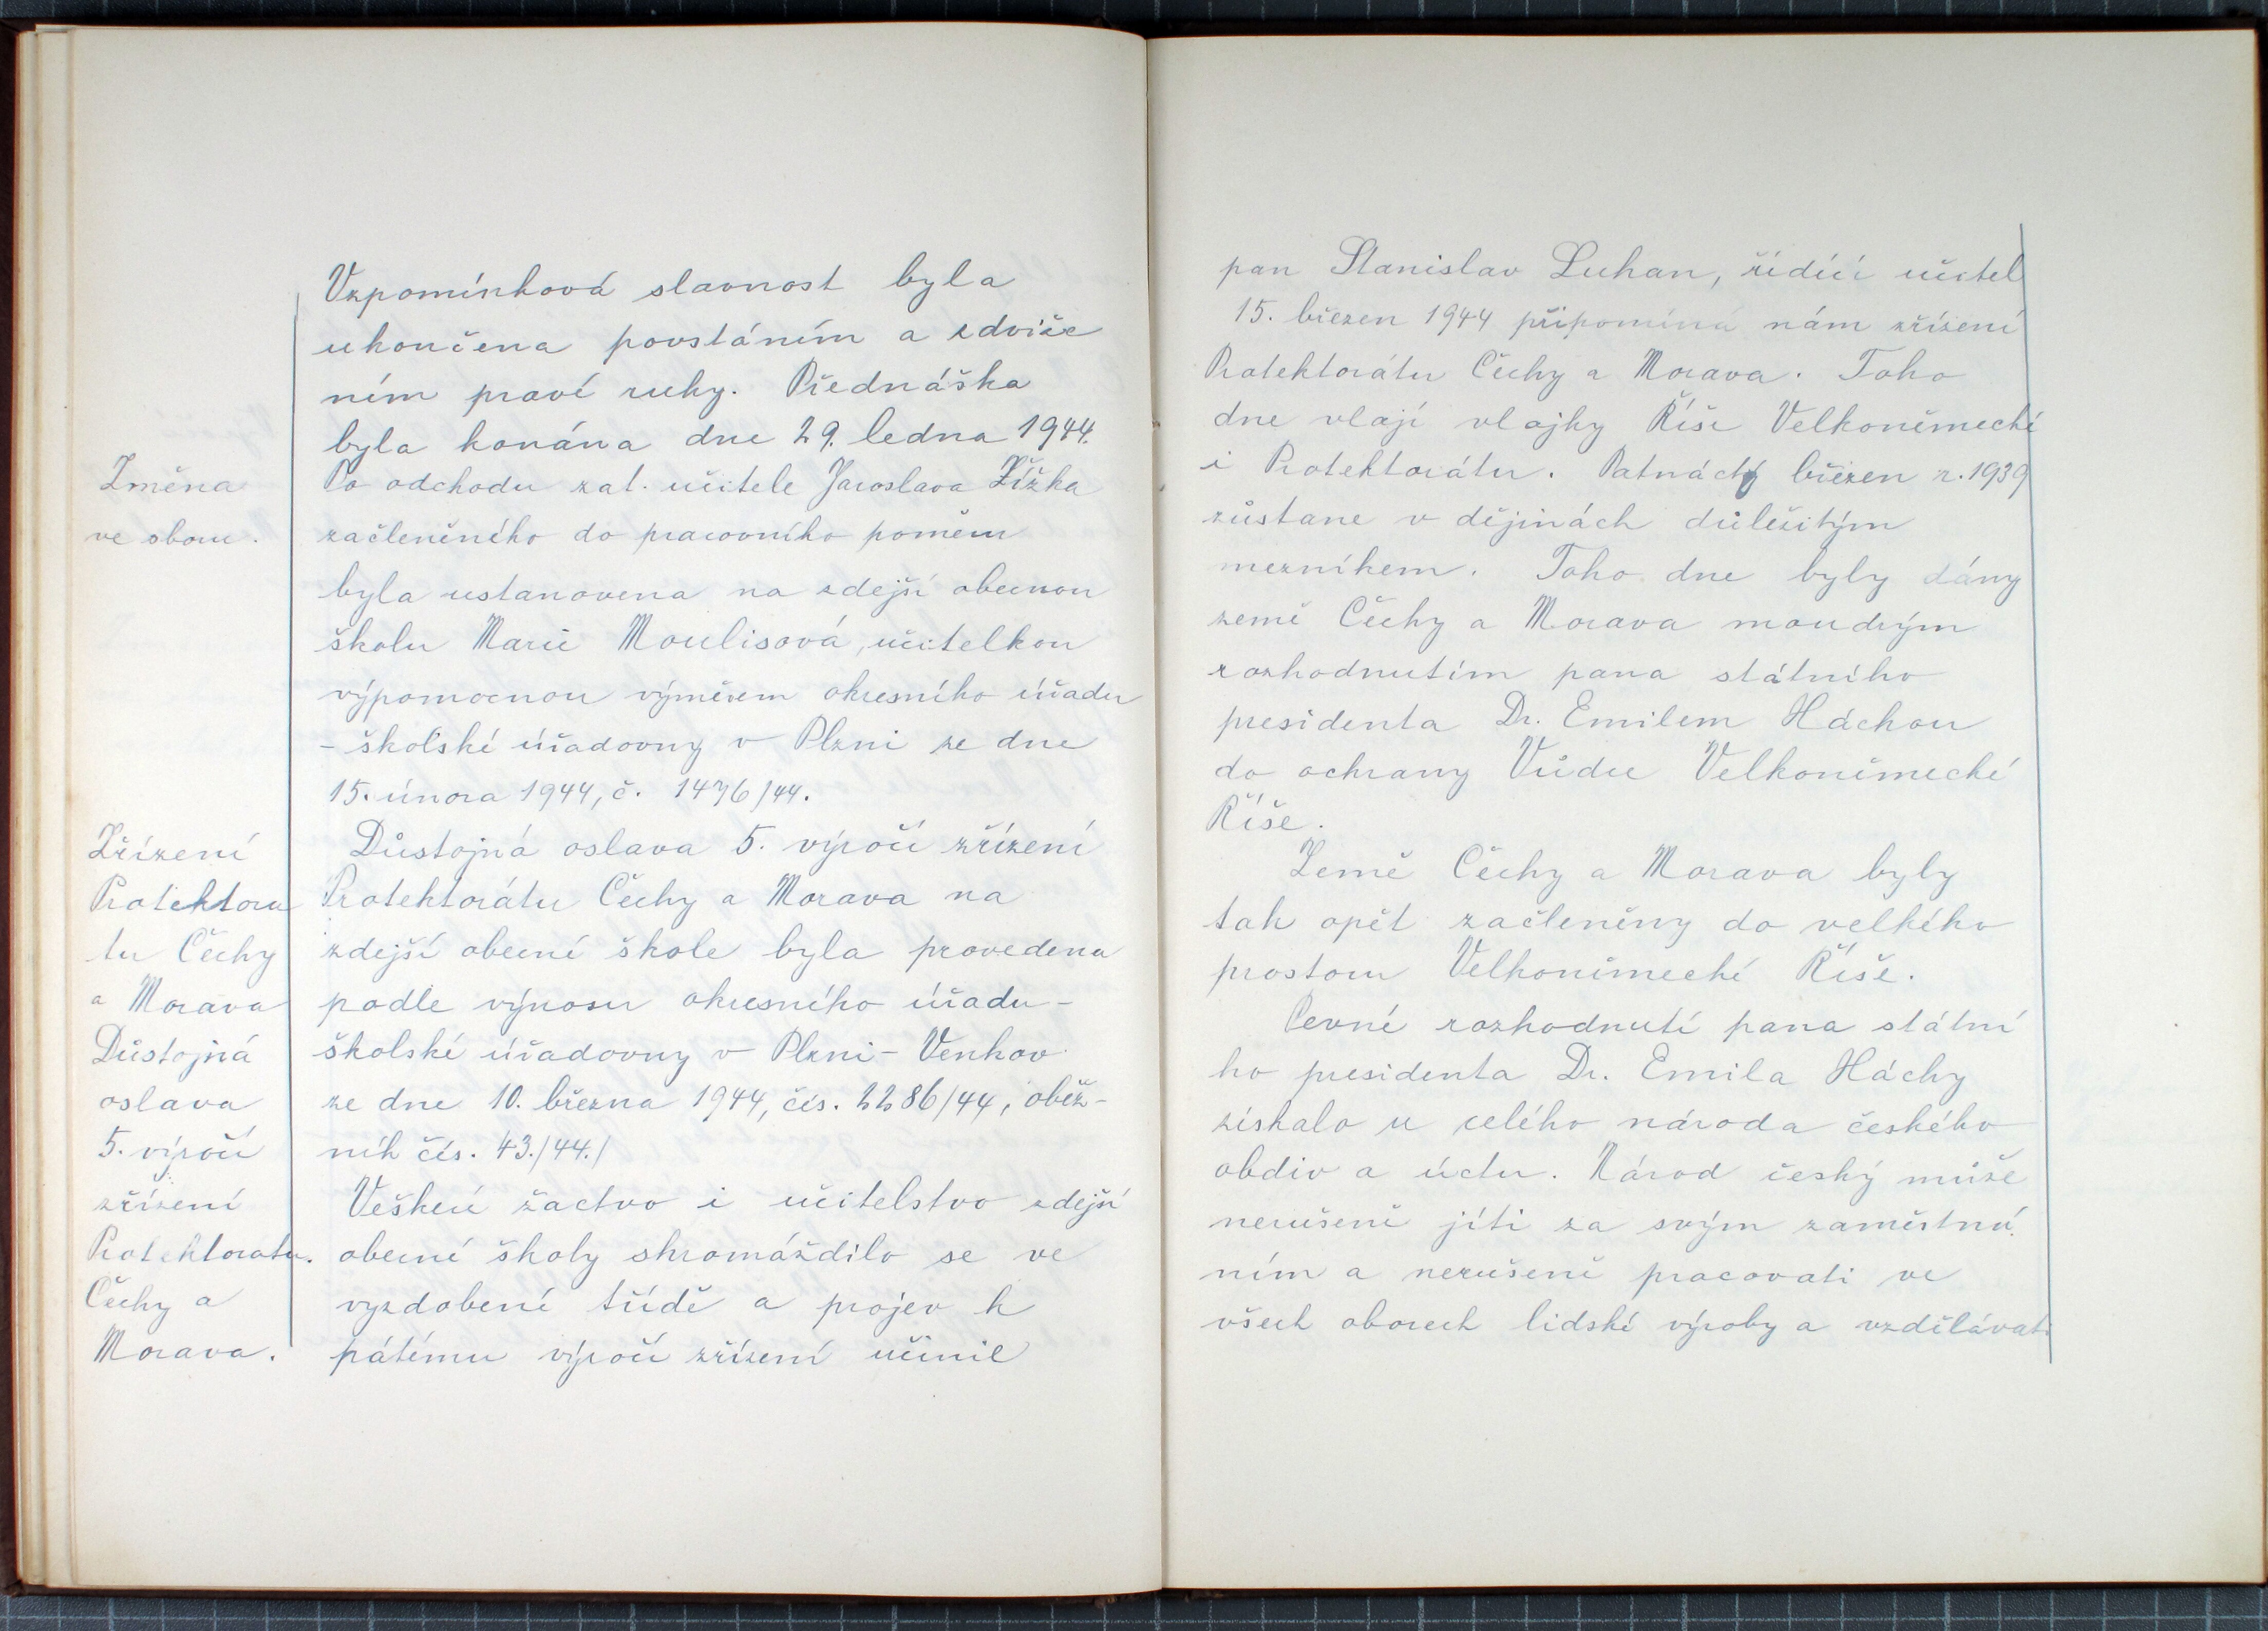 Vzpomínková slavnost byla
ukončena povstáním a zdviže
ním pravé ruky. Přednáška
byla konána dne 29. ledna 1944.
Změna
ve sboru.
Po odchodu zat. učitele Jaroslava Žížka
začleněného do pracovního poměru
byla ustanovena na zdejší obecnou
školu Marie Moulisová, učitelkou
výpomocnou výměrem okresního úřadu
- školské úřadovny v Plzni ze dne
15. února 1944, č. 1476/44.
Zřízení
Protektora
tu Čechy
a Morava
Důstojná
oslava
5. výročí
zřízení
Protektoratu.
Čechy a
Morava.
Důstojná oslava 5. výročí zřízení
Protektorátu Čechy a Morava na
zdejší obecné škole byla provedena
podle výnosu okresního úřadu -
školské úřadovny v Plzni - Venkov
ze dne 10. března 1944, čís. 2286/44, oběž-
ník čís. 43./44./
Veškeré žactvo i učitelstvo zdejší
obecné školy shromáždilo se ve
vyzdobené třídě a projev k
pátému výročí zřízení učinil
pan Stanislav Luhan, řídící učitel
15. březen 1944 připomíná nám zřízení
Protektorátu Čechy a Morava. Toho
dne vlají vlajky Říše Velkoněmecké
i Protektorátu. Patnáctý březen r. 1939
zůstane v dějinách důležitým
mezníkem. Toho dne byly dány
země Čechy a Morava moudrým
rozhodnutím pana státního
presidenta Dr. Emilem Háchou
do ochrany Vůdce Velkoněmecké
Říše.
Země Čechy a Morava byly
tak opět začleněny do velkého
prostoru Velkoněmecké Říše.
Pevné rozhodnutí pana státní
ho presidenta Dr. Emila Háchy
získalo u celého národa českého
obdiv a úctu. Národ český může
nerušeně jíti za svým zaměstná.
ním a nerušeně pracovati ve
všech oborech lidské výroby a vzdělávati